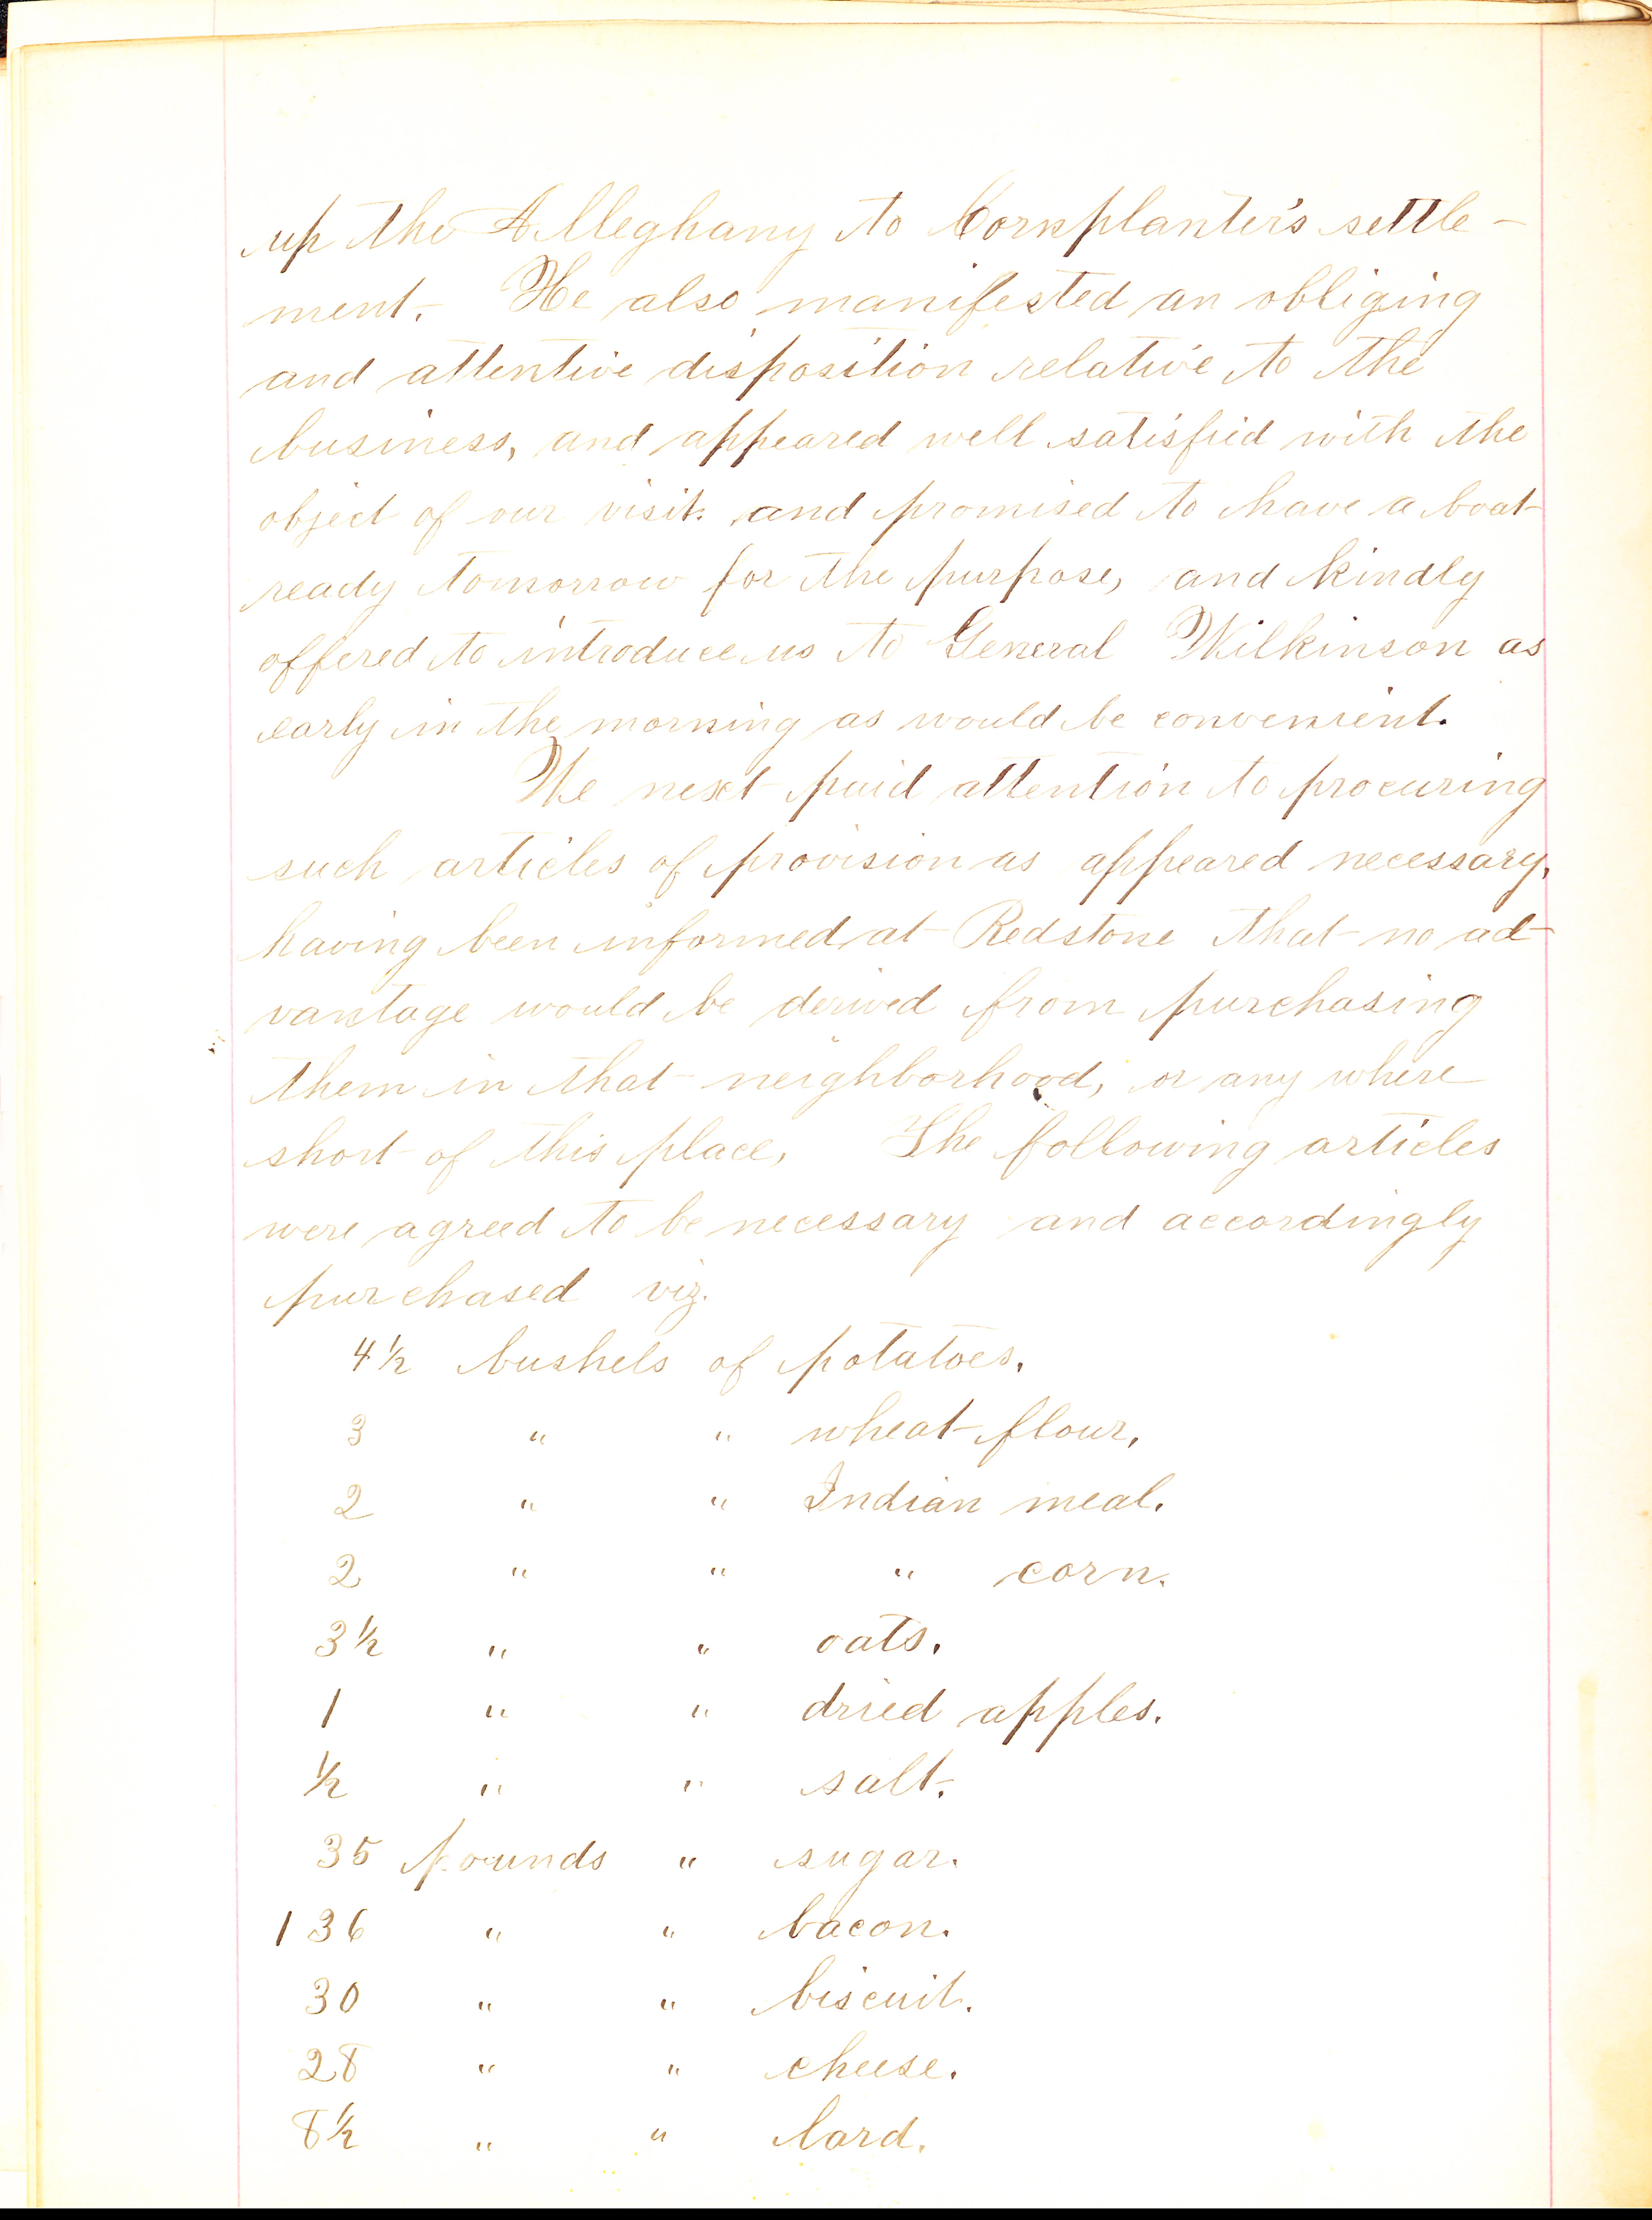 up the Alleghany to Cornplanter's settle-
ment. He also manifested an obliging
and attentive disposition relative to the
business, and appeared well satisfied with the
object of our visit. and promised to have a boat
ready tomorrow for the purpose, and kindly
offered to introduce us to General Wilkinson as
early in the morning as would be convenient.
We next paid attention to procuring
such articles of provision as appeared necessary,
having been informed at Redstone that no ad-
vantage would be derived from purchasing
them in that neighborhood, or any where
short of this place, The following articles
were agreed to be necessary and accordingly
purchased viz.
4½ bushels of potatoes.
3 " " wheat flour,
2 " " Indian meal.
2 " " " corn.
3½ " " oats.
1 " " dried apples.
½ " " salt.
35 pounds " sugar.
136 " " bacon.
30 " " biscuit.
28 " " cheese.
8½ " " lard.